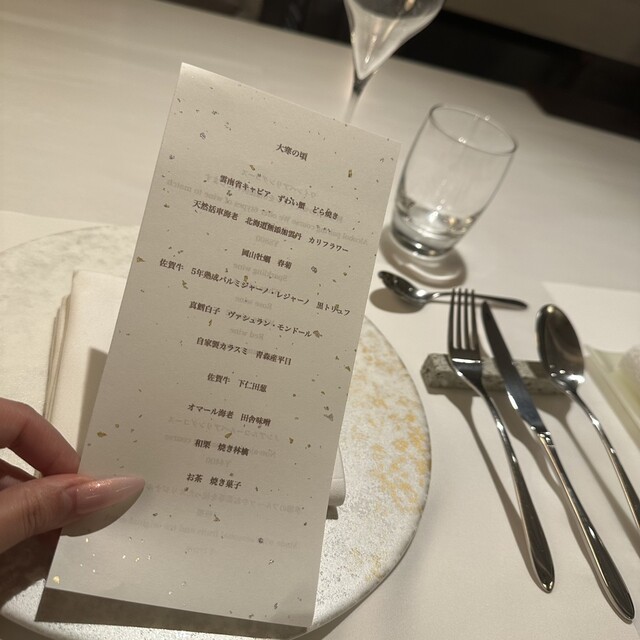 大寒の頃
雲南省キャビア　ずわい蟹　どら焼き
天然活車海老　北海道無添加雲丹　カリフラワー
岡山牡蠣　春菊
佐賀牛　5年熟成パルミジャーノ・レジャーノ　黒トリュフ
真鱈白子　ヴァシュラン・モンドール
自家製カラスミ　青森産平目
佐賀牛　下仁田葱
オマール海老　田舎味噌
和栗　焼き林檎
お茶　焼き菓子